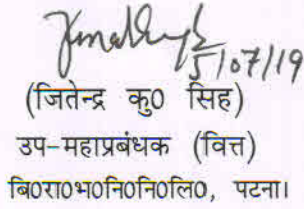 5/07/19
(जितेन्द्र कु0 सिंह)
उप-महाप्रबंधक (वित्त)
बि0रा0भ0नि0नि0लि0, पटना।